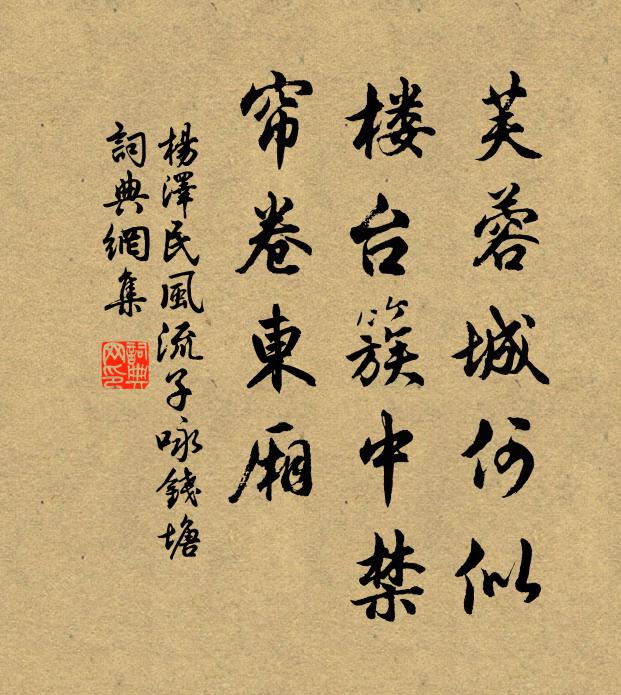 芙蓉城何似
楼台簇中禁
帘卷東厢
楊澤民風流子咏錢塘
詞典網集
詞典
网印